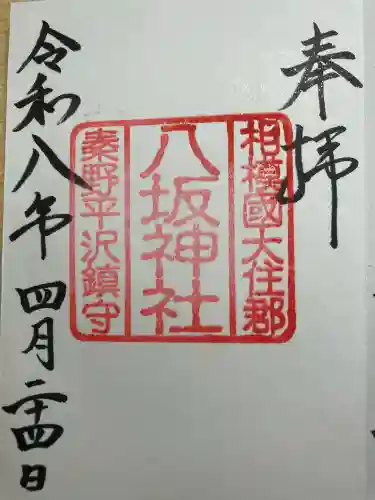 奉拝
相模國大住郡
八坂神社
秦野平沢鎮守
令和八年四月二十四日